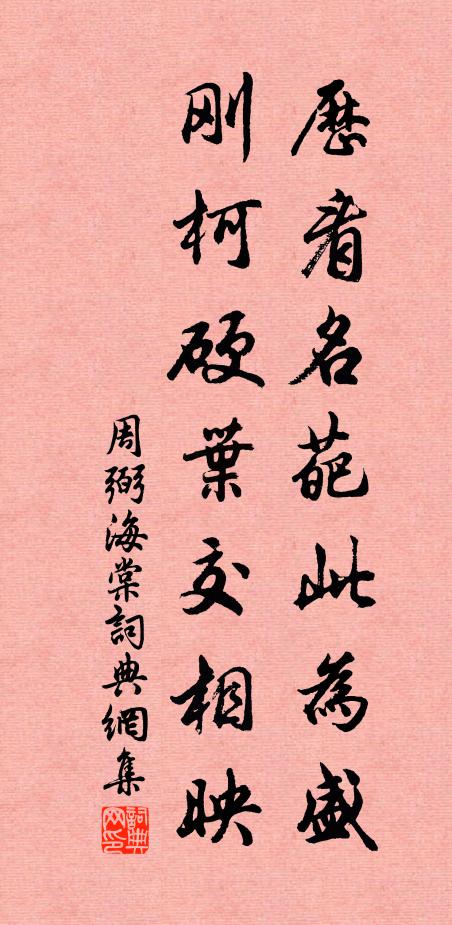 歷看名葩此為盛
刚柯硬葉交相映
周弼海棠詞典網集
詞典网印